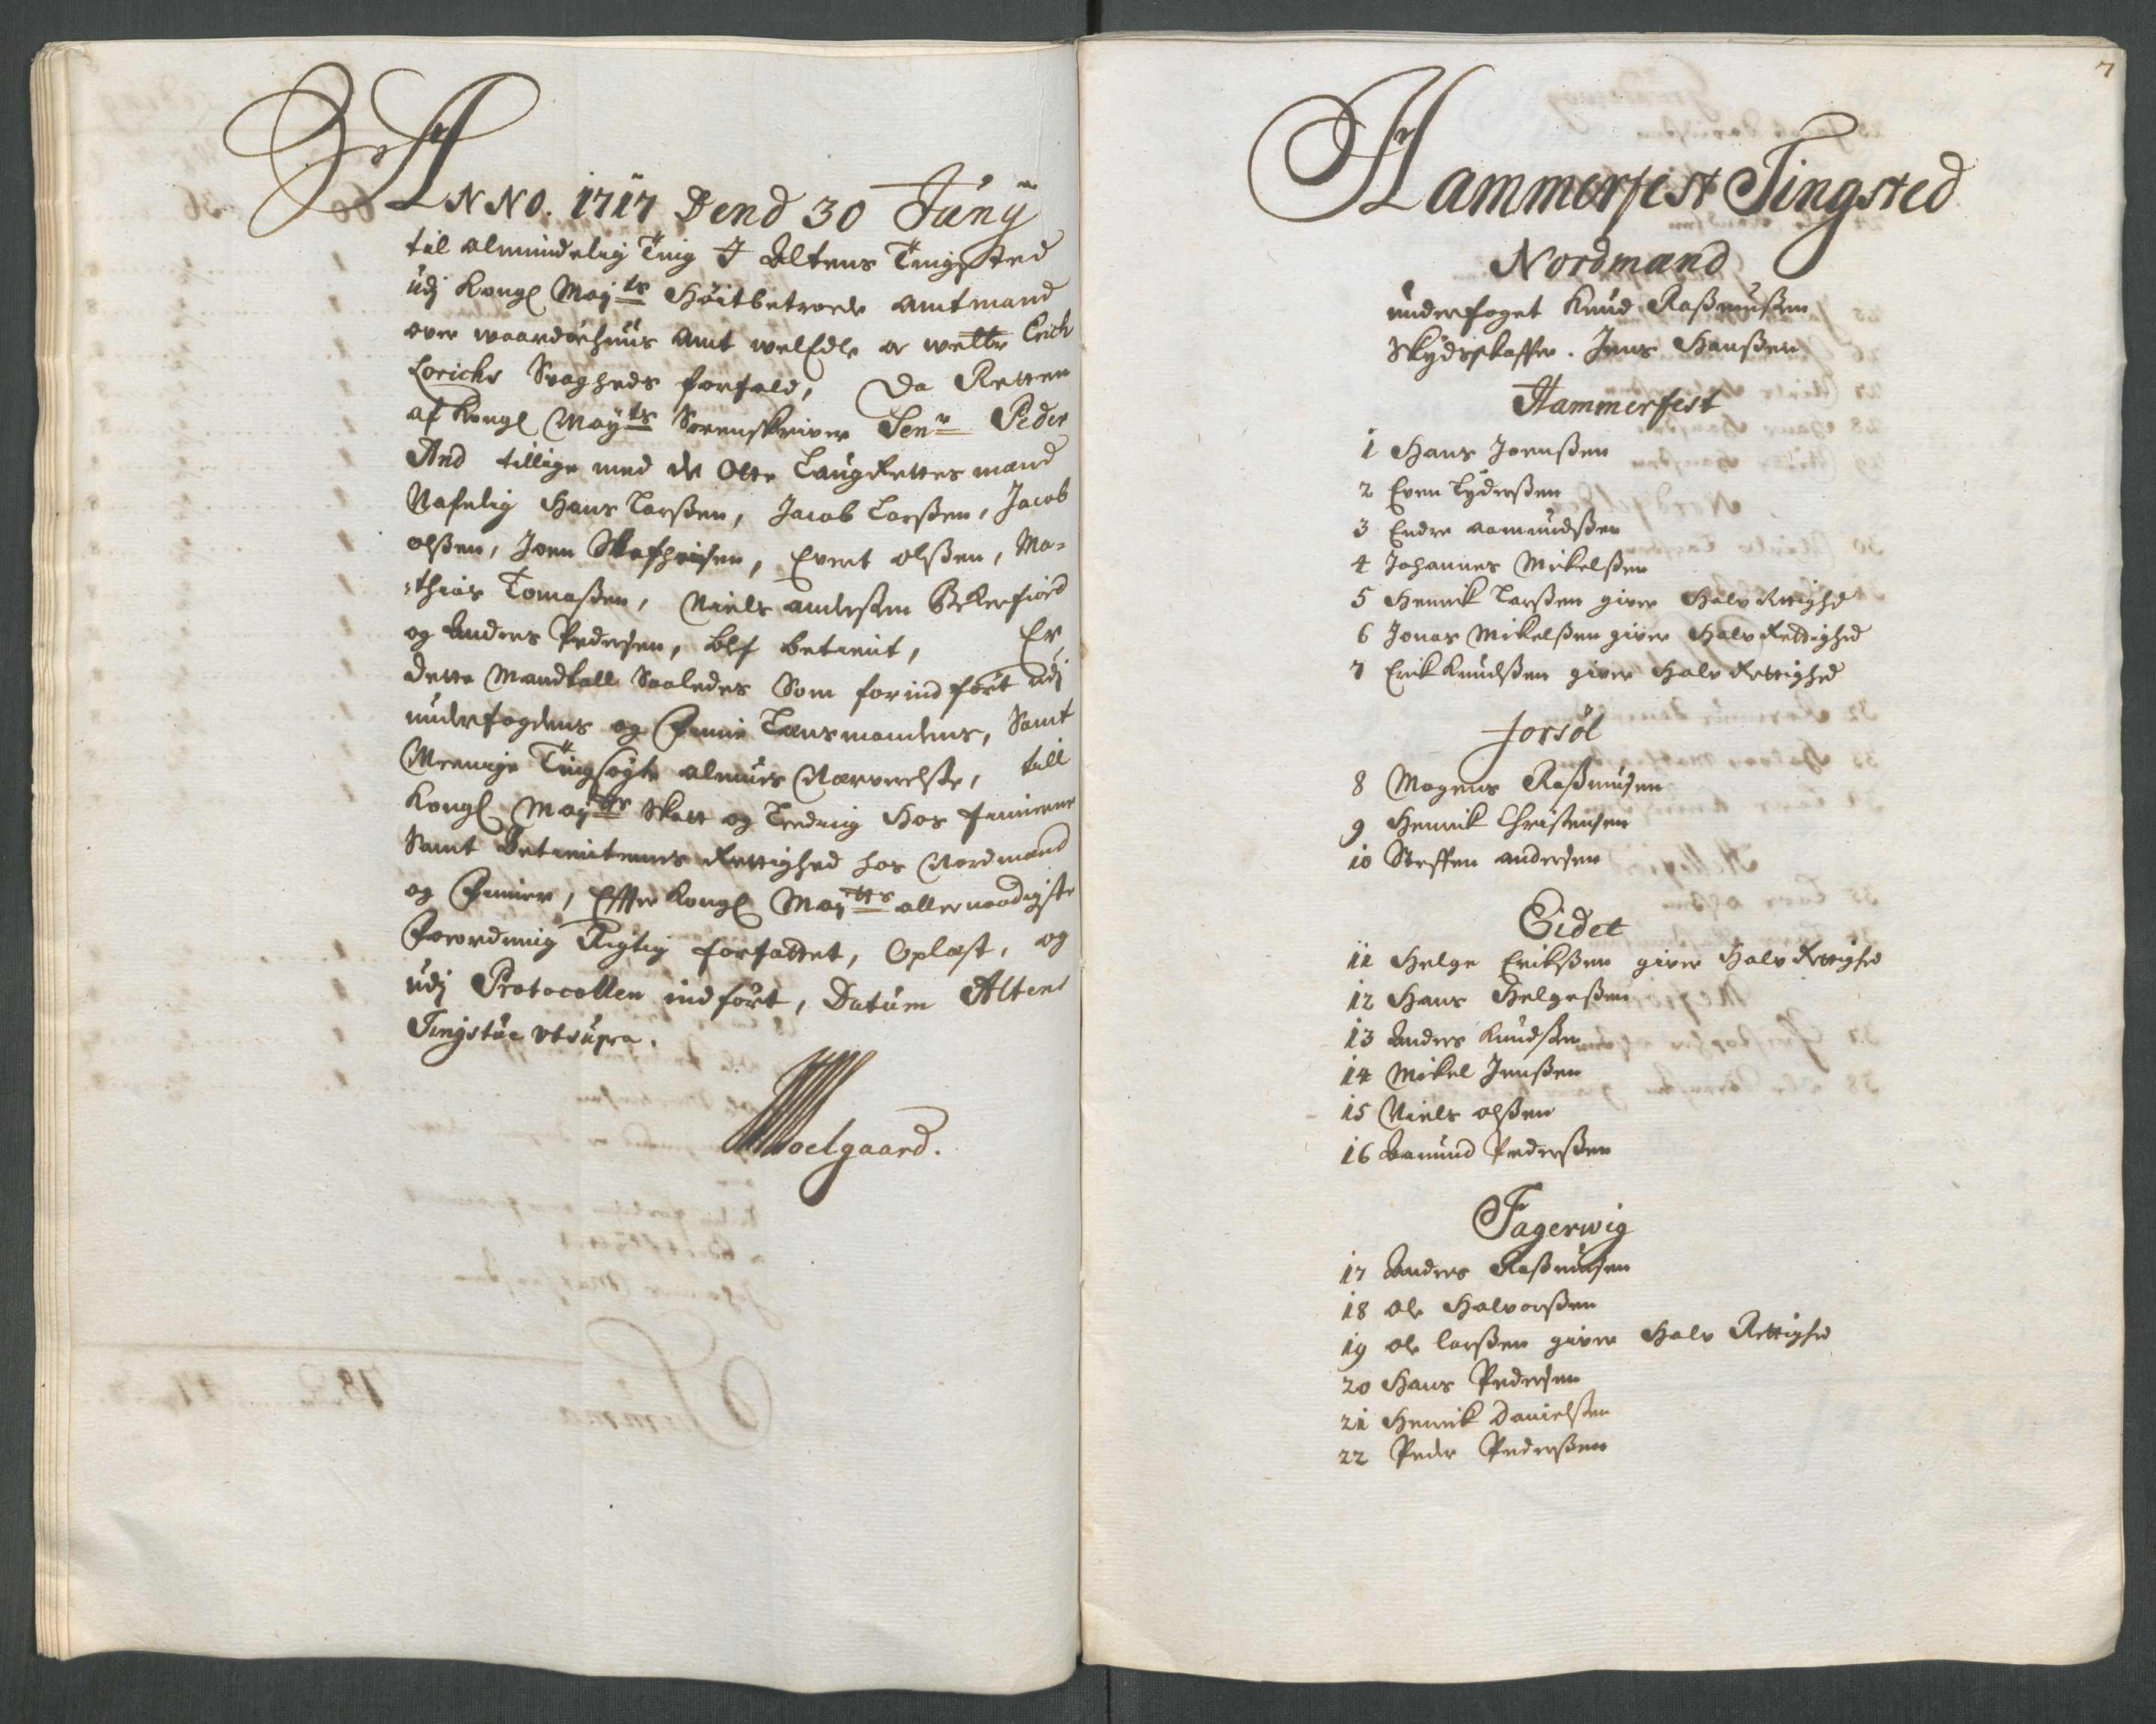 ANNO. 1717 Dend 30 Juny
til almindelig Ting I Altens Tingsted
udj Kongl Maytz Höitbetroede amtmand
over waardöehuus Amt welEdle og welbr Erich
Lorichs Svagheds forfald, Da Retten
af Kongl Maytz Sorenskriver Senr Peder
And tillige med de Otte Laug Rettes mænd
Nafnlig Hans Larßen, Jacob Larßen, Jacob
olßen, Joen Stefhensen, Evert olßen, Ma-
-thias Tomaßen, Niels anderßen
og Anders Pedersen, blef betient, Er
dette Mandtall Saaledes Som forindfört udj
underfogdens og Finnie Lensmandens, Samt
Meenige Tingsögte almues Nærverelße, till
Kongl Maytts Skatt og Leeding hos finnerne
Samt Betienternes Rettighed hos Nordmænd
og Finner, Effter Kongl Maytts allernaadigste
Forordning Rigtig forfattet, Oplæst, og
udj Protocollen indfört, Datum Altens
Tingstue utsupra.
Moelgaard.
7
Hammerfest Tingsted
Nordmænd
underfoget Knud Raßmußen
Skydsskaffer. Jens Hanßen
Hammerfest
1 Hans Joenßen
2 Even Tyderßen
3 Endre aamundßen
4 Johannes Mikelßen
5 Henrik Larßen giver Halv Rettighd
6 Jonas Mikelßen giver Halv Rettighed
7 Erik Knudßen giver Halv Rettighed
forsöl
8 Mogens Raßmusen
9 Henrik Christensen
10 Steffen andersen
Eidet
11 Helge Erikßen giver Halv Rettighed
12 Hans Helgeßen
13 Anders Knudßen
14 Mikel Jenßen
15 Niels olßen
16 Aamund Pederßen
Fagerwig
17 Anders Raßmusen
18 ole Halvorßen
19 ole larßen giver Halv Rettighed
20 Hans Pedersen
21 Henrik Danielßen
22 Peder Pederßen